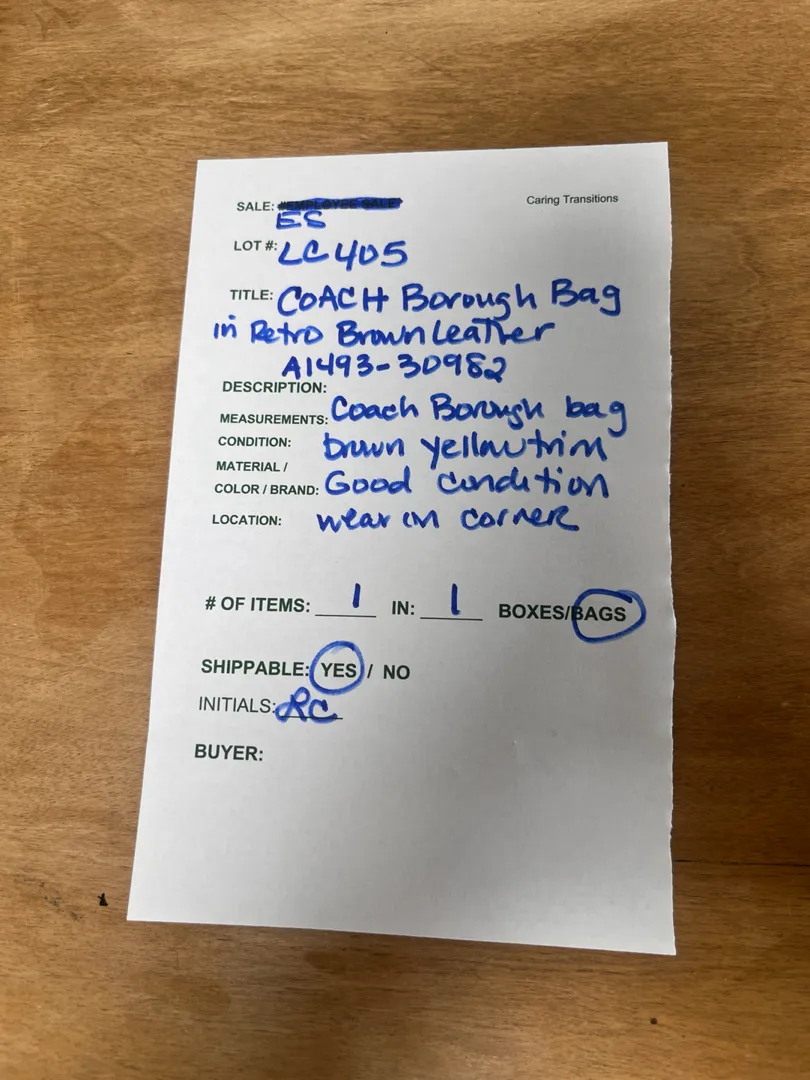 Caring Transitions
SALE: #EMPLOYEE SALE
ES
LOT #: LC405
TITLE: COACH Borough Bag
in Retro Brown Leather
A1493-30982
DESCRIPTION:
MEASUREMENTS: Coach Borough bag
CONDITION: brown yellow trim
MATERIAL /
COLOR / BRAND: Good condition
LOCATION: wear on corner
# OF ITEMS: 1 IN: 1 BOXES/BAGS
SHIPPABLE: YES / NO
INITIALS: RC
BUYER: